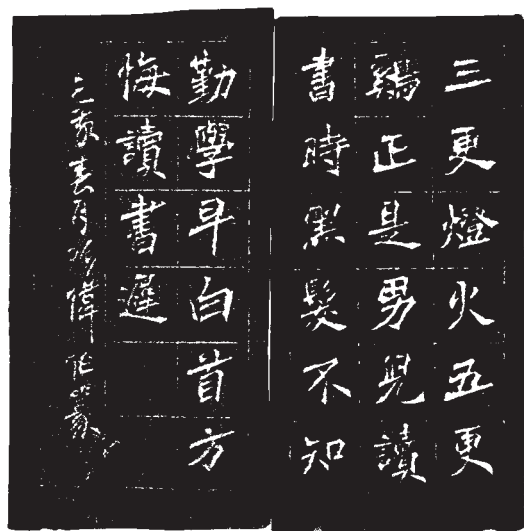 三更燈火五更
鷄正是男兒讀
書時黑髮不知
勤學早白首方
悔讀書遲